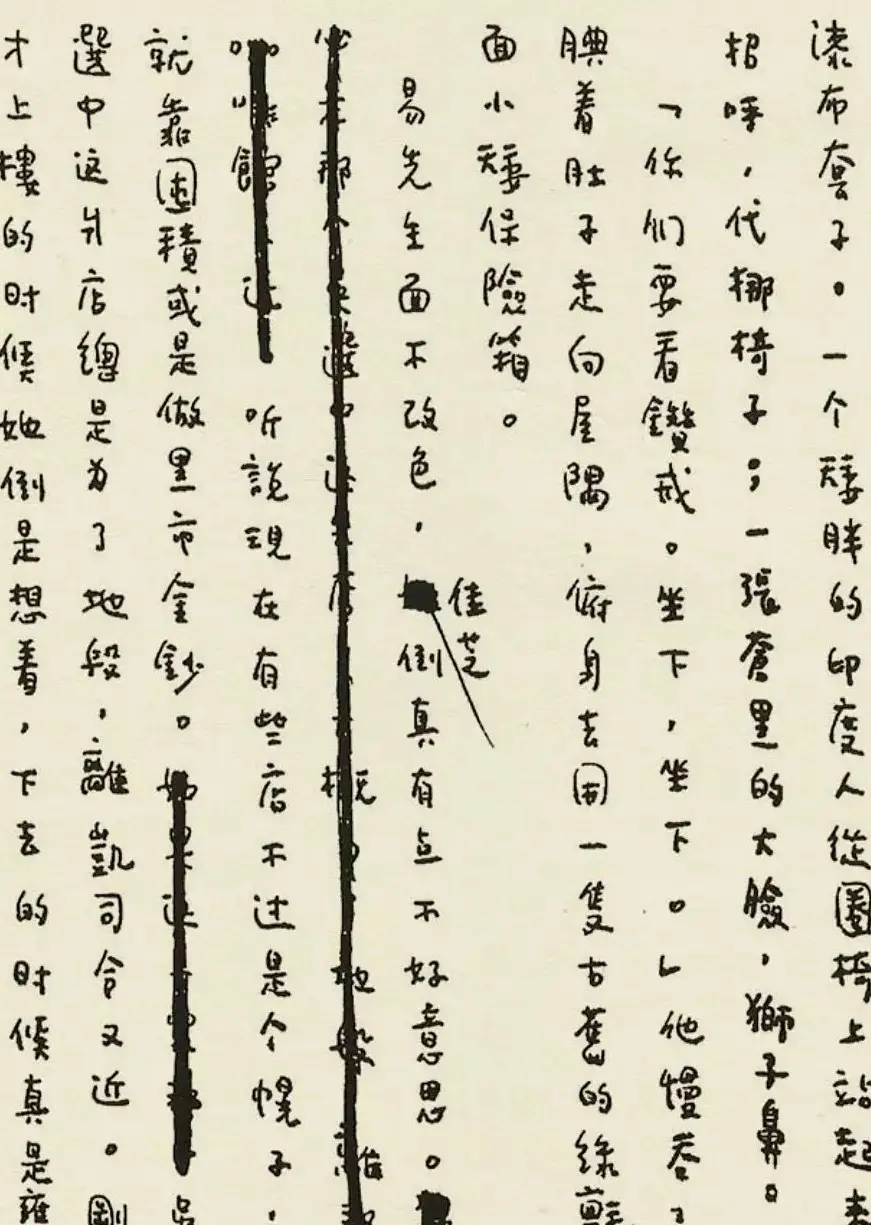 漆布套子。一个矮胖的印度人從圈椅上站起來
招呼，代挪椅子；一張蒼黑的大臉，獅子鼻。
「你们要看鑽戒。坐下，坐下。」他慢吞了
腆着肚子走向屋隅，俯身去開一隻古舊的綠
面小矮保險箱。
易先生面不改色，佳芝倒真有点不好意思。
听說現在有些店不过是个幌子，
就靠囤積或是做黑市金鈔。
選中这爿店總是为了地段，離凱司令又近。剛
才上樓的时候她倒是想着，下去的时候真是甕